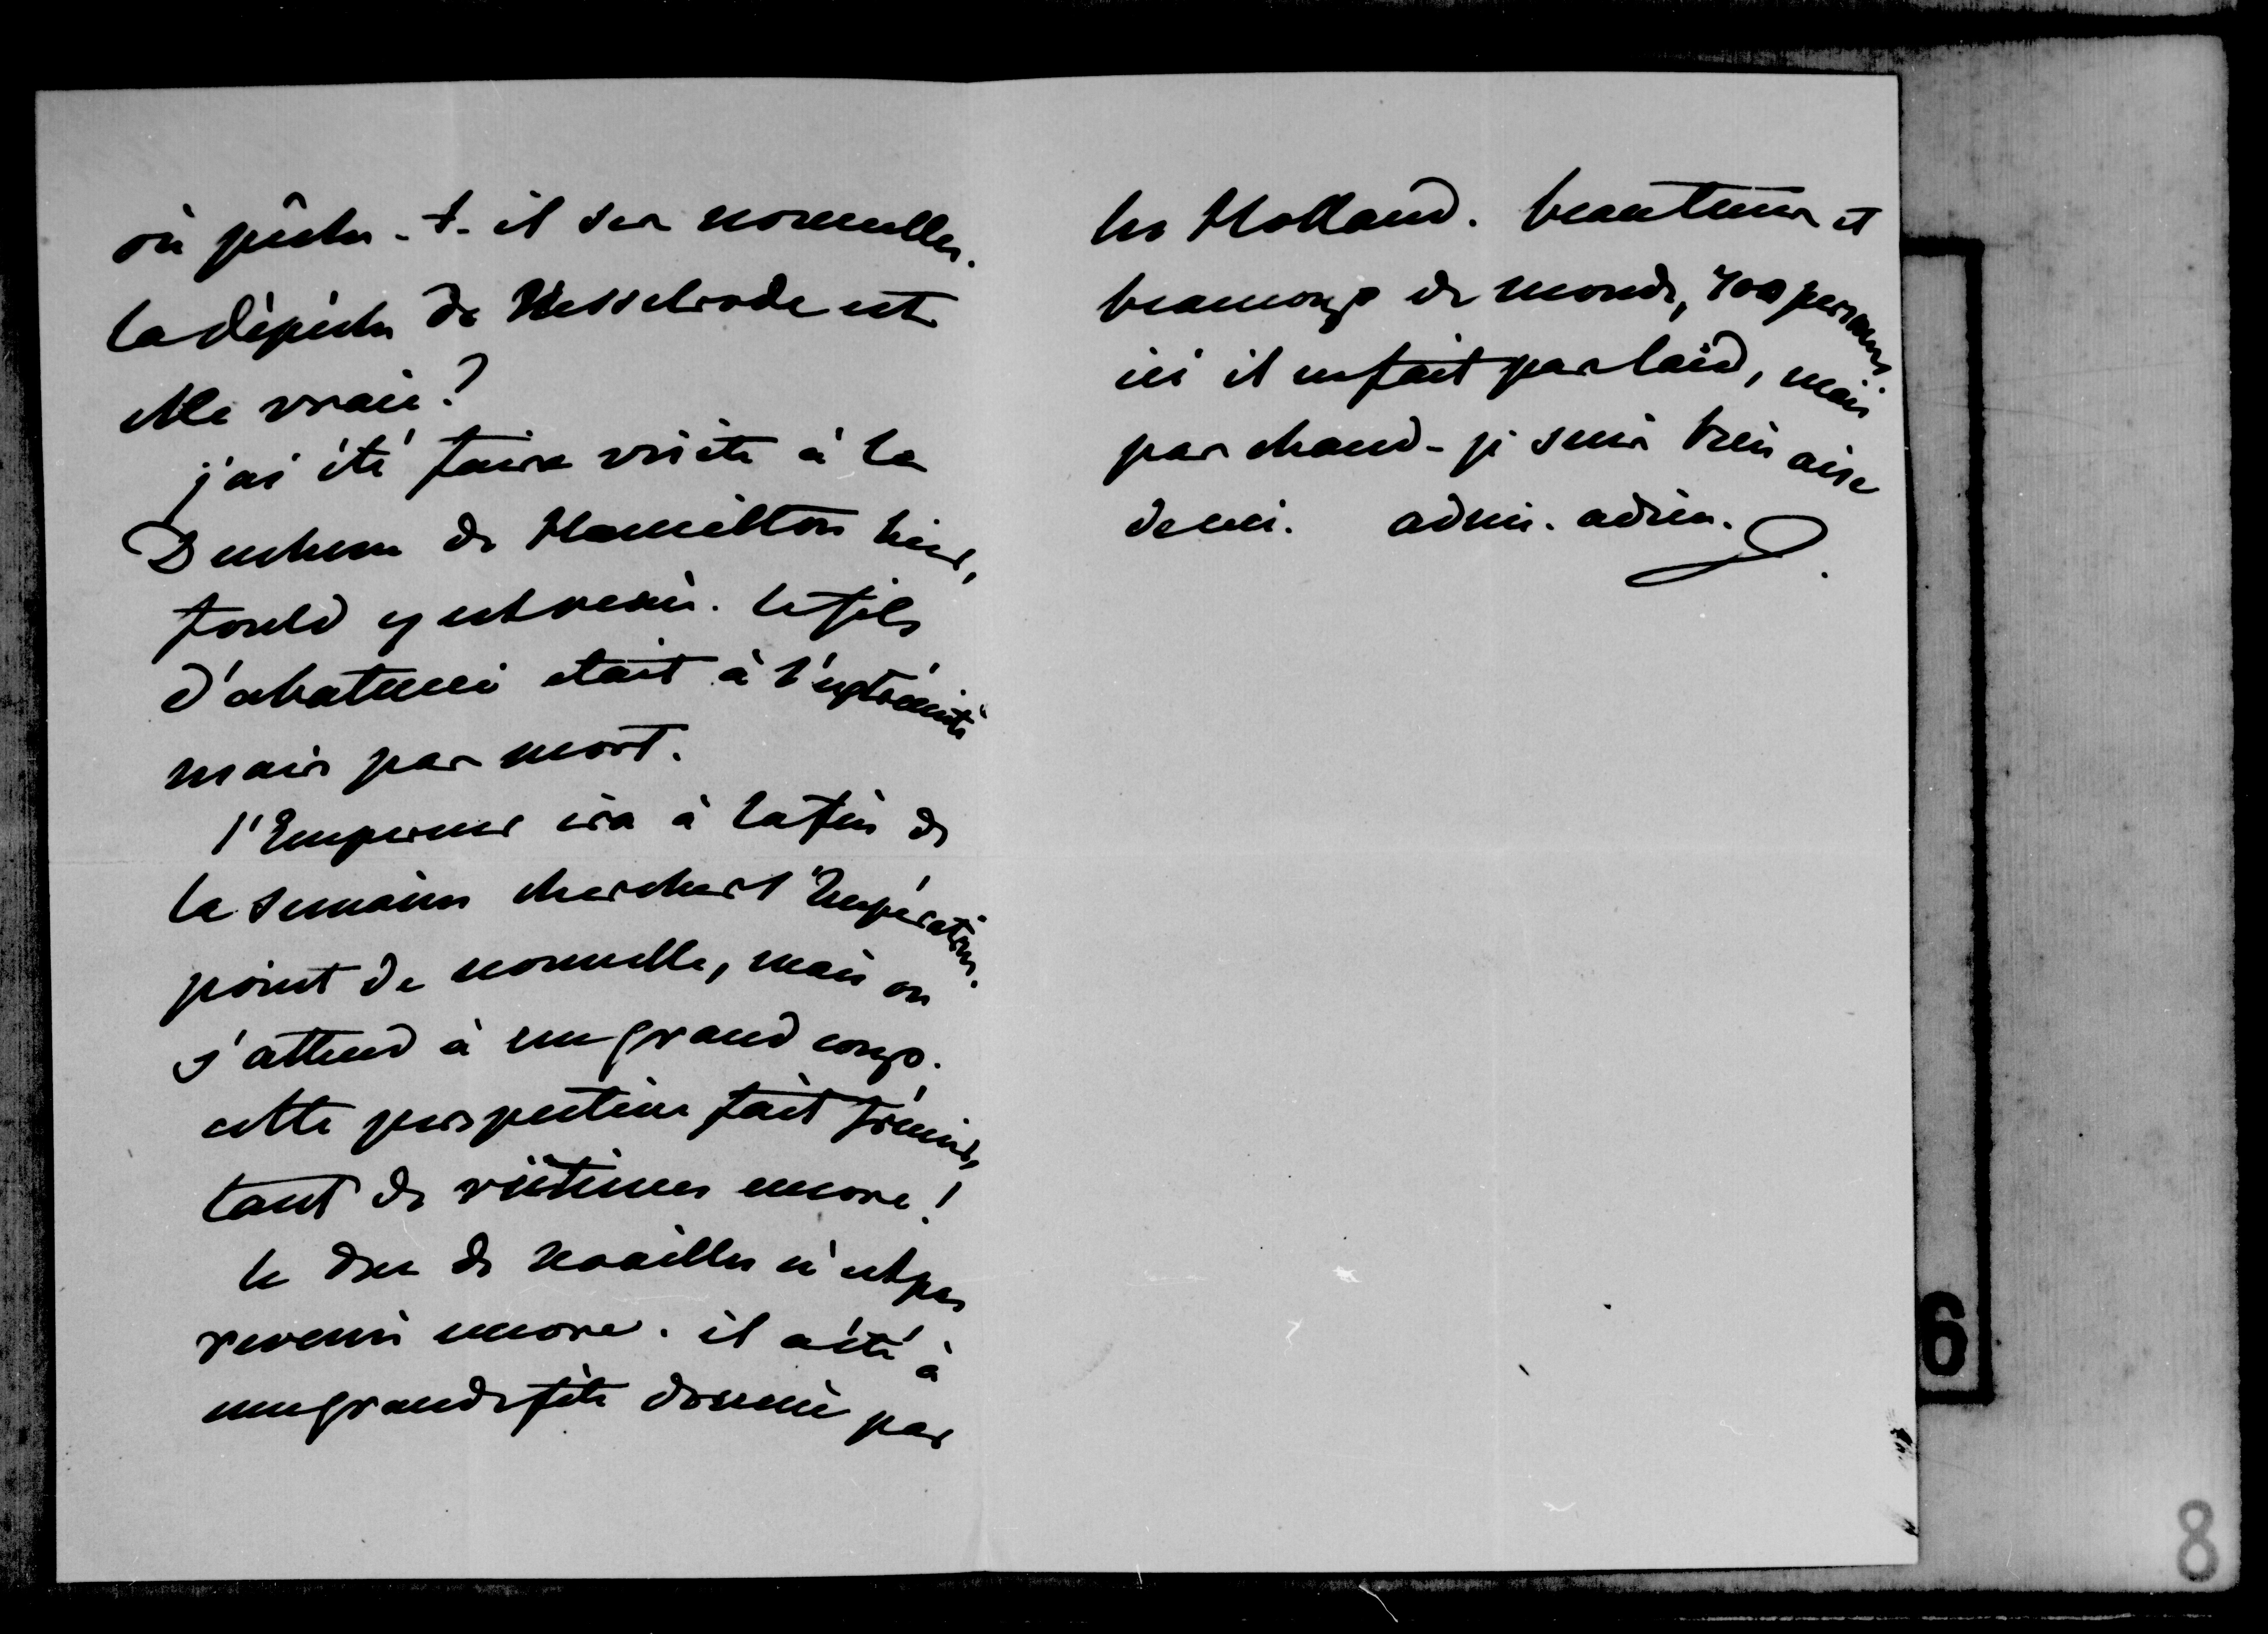 où pêche-t-il ses nouvelles.
la dépêche de Nesselrode est
elle vraie?
j'ai été faire visite à la
Duchesse de Hamilton hier,
fould y est venu. le fils
d'abatucci etait à l'extrémité
mais pas mort.
l'Empereur ira à la fin de
la semaine chercher l'Impératrice.
point de nouvelle, mais on
s'attend à un grand coup.
cette perspective fait frémir,
tant de victimes encore!
le duc de noailles n'est pas
revenu encore. il a été à
une grande fête donnée par
les Holland. beau tems et
beaucoup de monde, 400 personnes.
ici il ne fait pas laid, mais
pas chaud - je suis bien aise
de ceci. adieu. adieu.
6
8